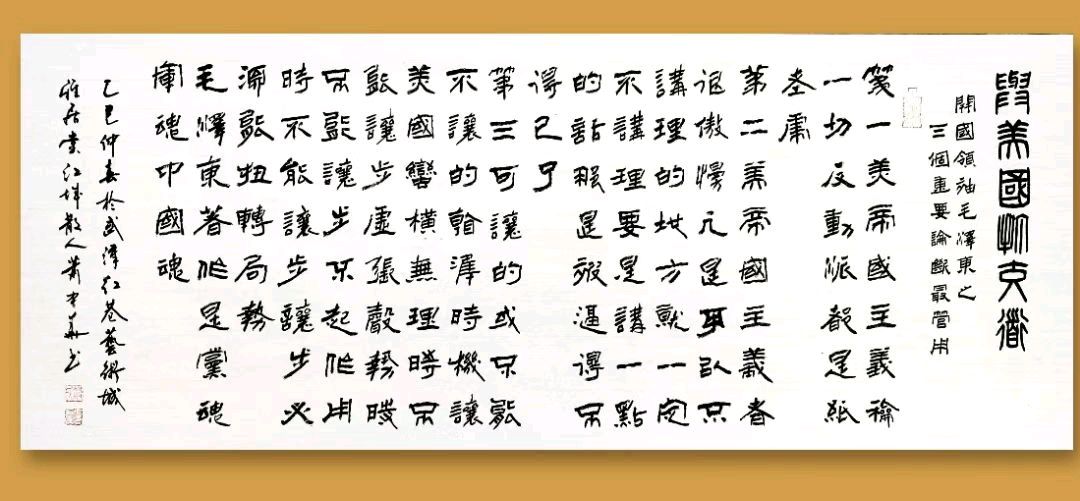 與美國打交道
開國領袖毛澤東之
三個重要論斷最管用
第一美帝國主義和
一切反動派都是紙
老虎
第二美帝國主義者
很傲慢凡是可以不
講理的地方就一定
不講理要是講一點
的話那是被逼得不
得已了
第三可讓的或不能
不讓的時機讓
美國蠻橫無理時不
能讓步虛張聲勢時
不能讓步不起作用
時不能讓步讓步必
須能扭轉局勢
毛澤東著作是黨魂
軍魂中國魂
乙巳仲春於武漢紅巷藝術城
紅城散人華书